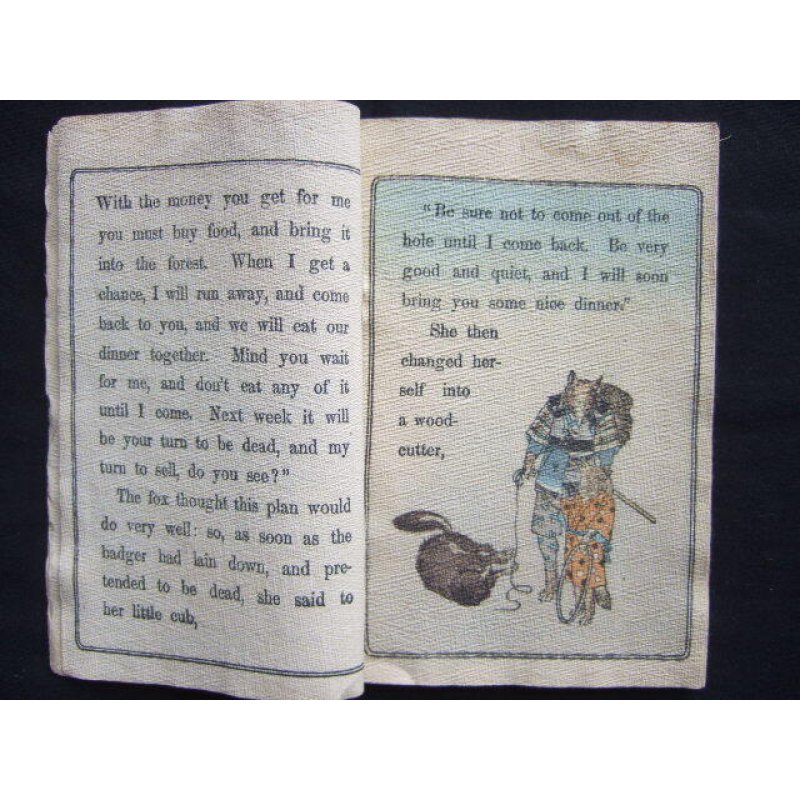 With the money you get for me
you must buy food, and bring it
into the forest. When I get a
chance, I will run away, and come
back to you, and we will eat our
dinner together. Mind you wait
for me, and don't eat any of it
until I come. Next week it will
be your turn to be dead, and my
turn to sell, do you see?"
The fox thought this plan would
do very well: so, as soon as the
badger had lain down, and pre-
tended to be dead, she said to
her little cub,
"Be sure not to come out of the
hole until I come back. Be very
good and quiet, and I will soon
bring you some nice dinner."
She then
changed her-
self into
a wood-
cutter,